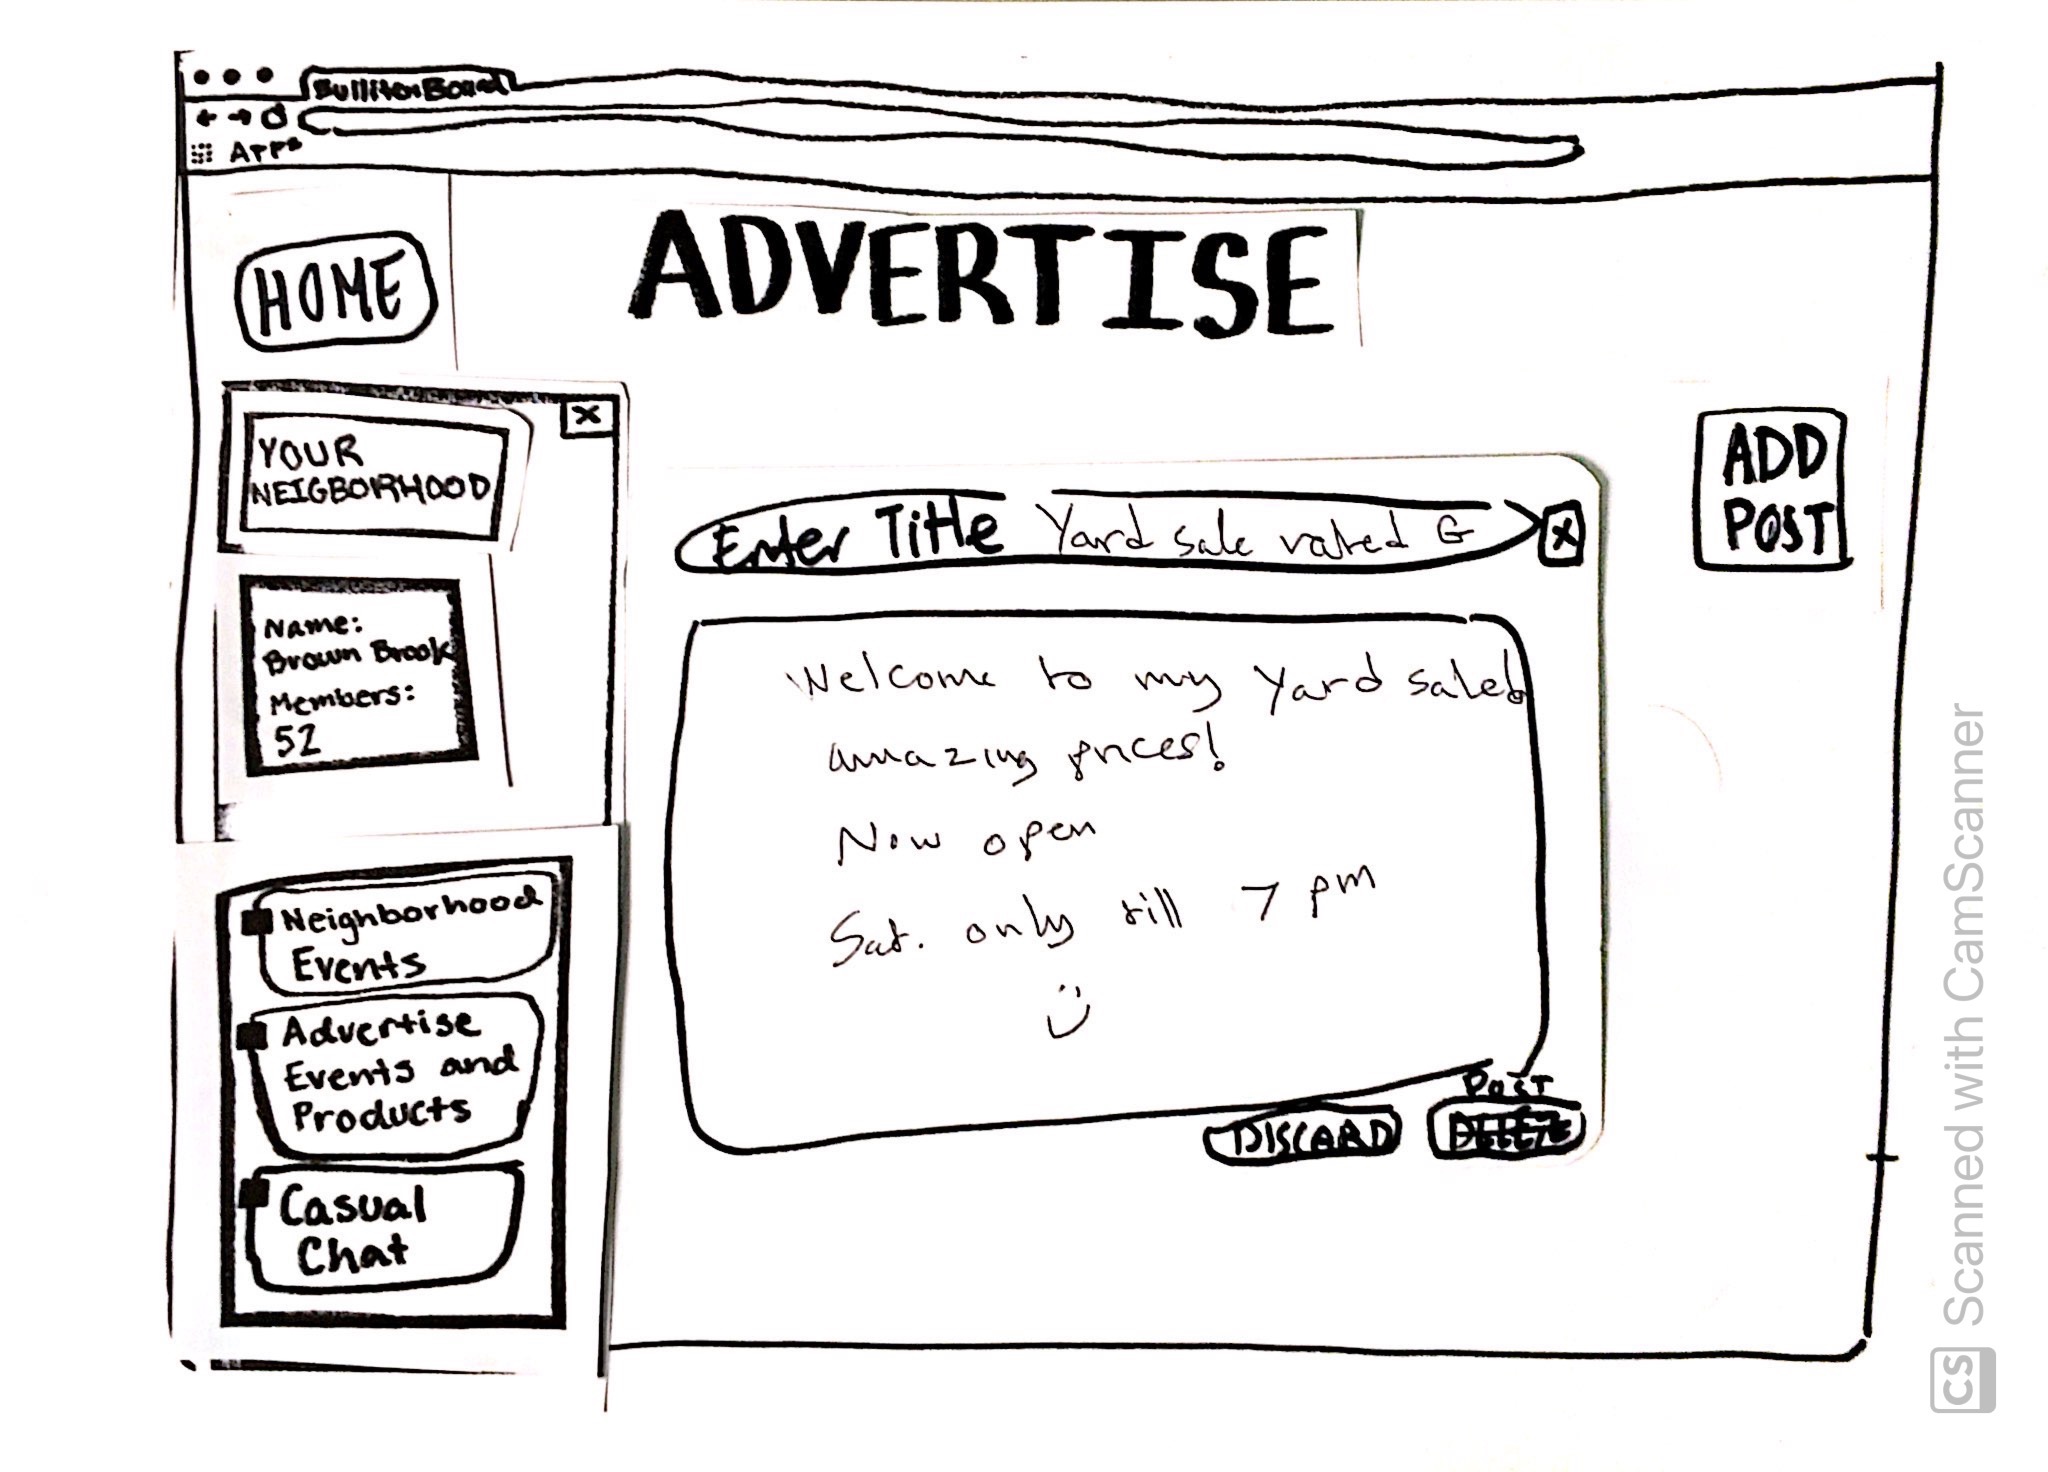 BullitonBoard
Apps
HOME
ADVERTISE
X
YOUR
NEIGBORHOOD
Name:
Brown Brook
Members:
52
Neighborhood
Events
Advertise
Events and
Products
Casual
Chat
ADD
POST
Enter Title Yard sale rated G
X
Welcome to my yard sale!
amazing prices!
Now open
Sat. only till 7 pm
POST
DISCARD
CS Scanned with CamScanner